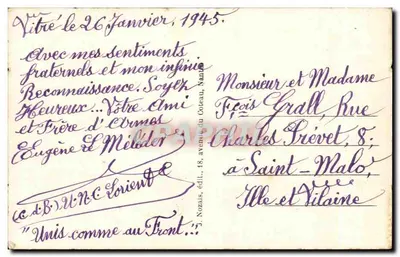 Vitré le 26 Janvier, 1945.
Avec mes sentiments
fraternels et mon infinie
Reconnaissance. Soyez
Heureux... Votre Ami
et Frère d'Armes
Eugène Le Mélédor
(C.A.B.) U-N-C Lorient
"Unis comme au Front.!!
Nozais, édit., 18, avenue du Coteau, Nantes
Monsieur et Madame
Fçois Grall, Rue
Charles Prévet, 8,
à Saint-Malo,
Ille et Vilaine